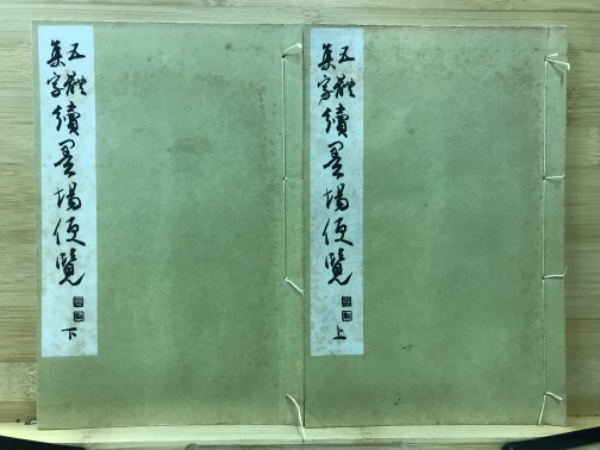 五體
集字
續墨場便覽
上
五體
集字
續墨場便覽
下